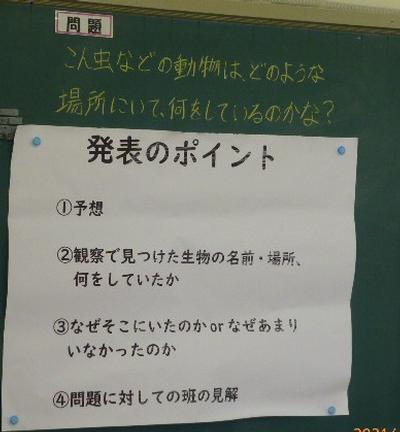 問題
こん虫などの動物は、どのような
場所にいて、何をしているのかな?
発表のポイント
①予想
②観察で見つけた生物の名前・場所、
何をしていたか
③なぜそこにいたのか or なぜあまり
いなかったのか
④問題に対しての班の見解